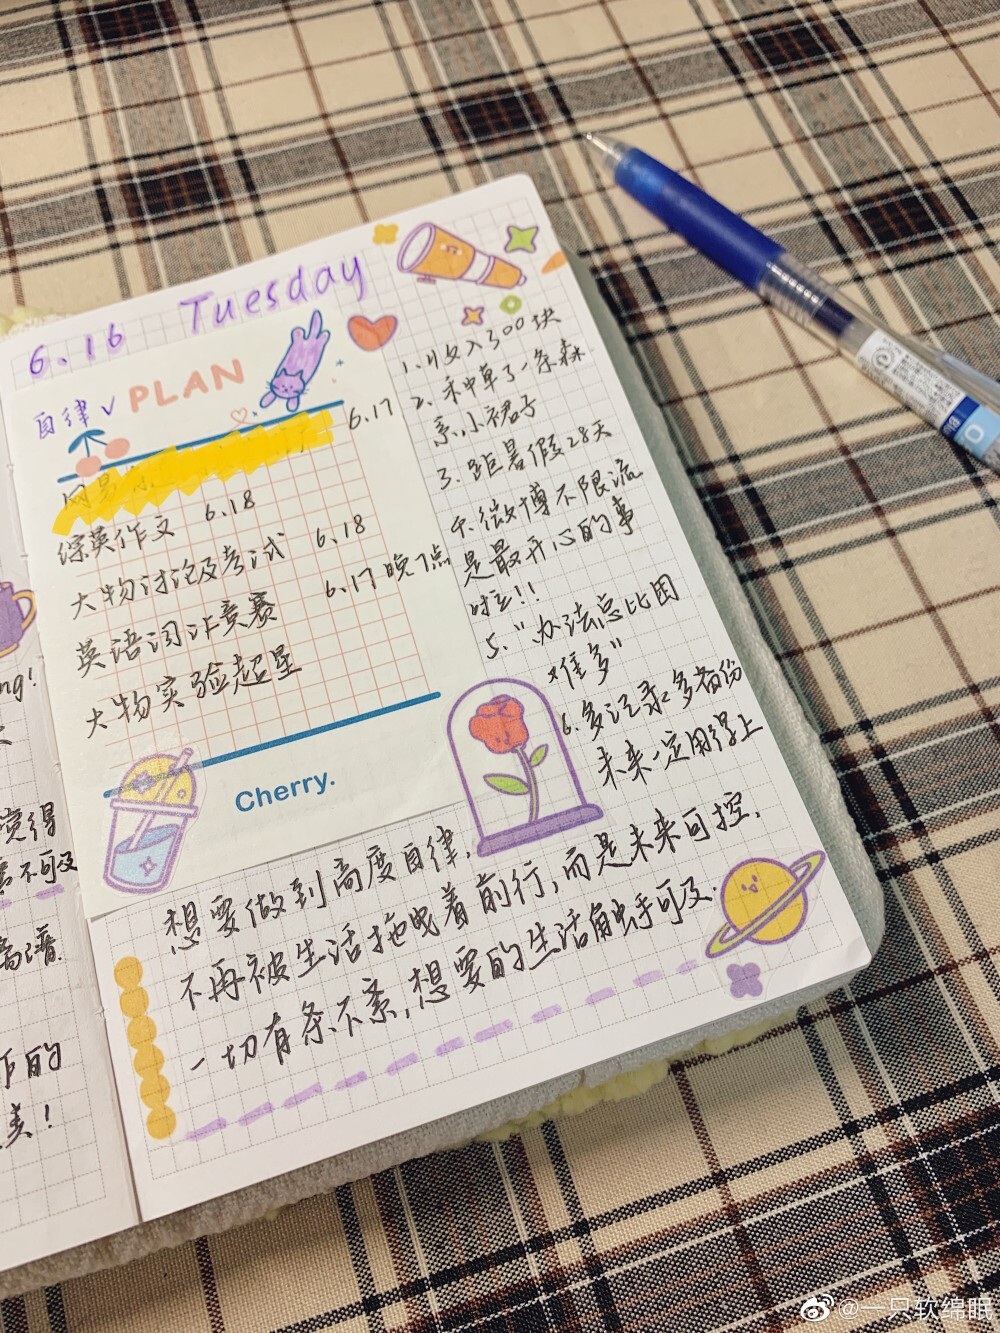 6.16 Tuesday
自律✓
PLAN
6.17
综英作文 6.18
大物讨论及考试 6.18
英语词汇竞赛 6.17晚7点
大物实验超星
Cherry.
1.收入300块
2.种草了一条森
系小裙子
3.距暑假28天
4.微博不限流
是最开心的事
啦!!
5."办法总比困
难多"
6.多记录多备份
未来一定用得上
想要做到高度自律,
不再被生活拖曳着前行,而是未来可控,
一切有条不紊,想要的生活触手可及.
ng!
觉得
不可及
高谱.
作的
美!
@一只软绵眠